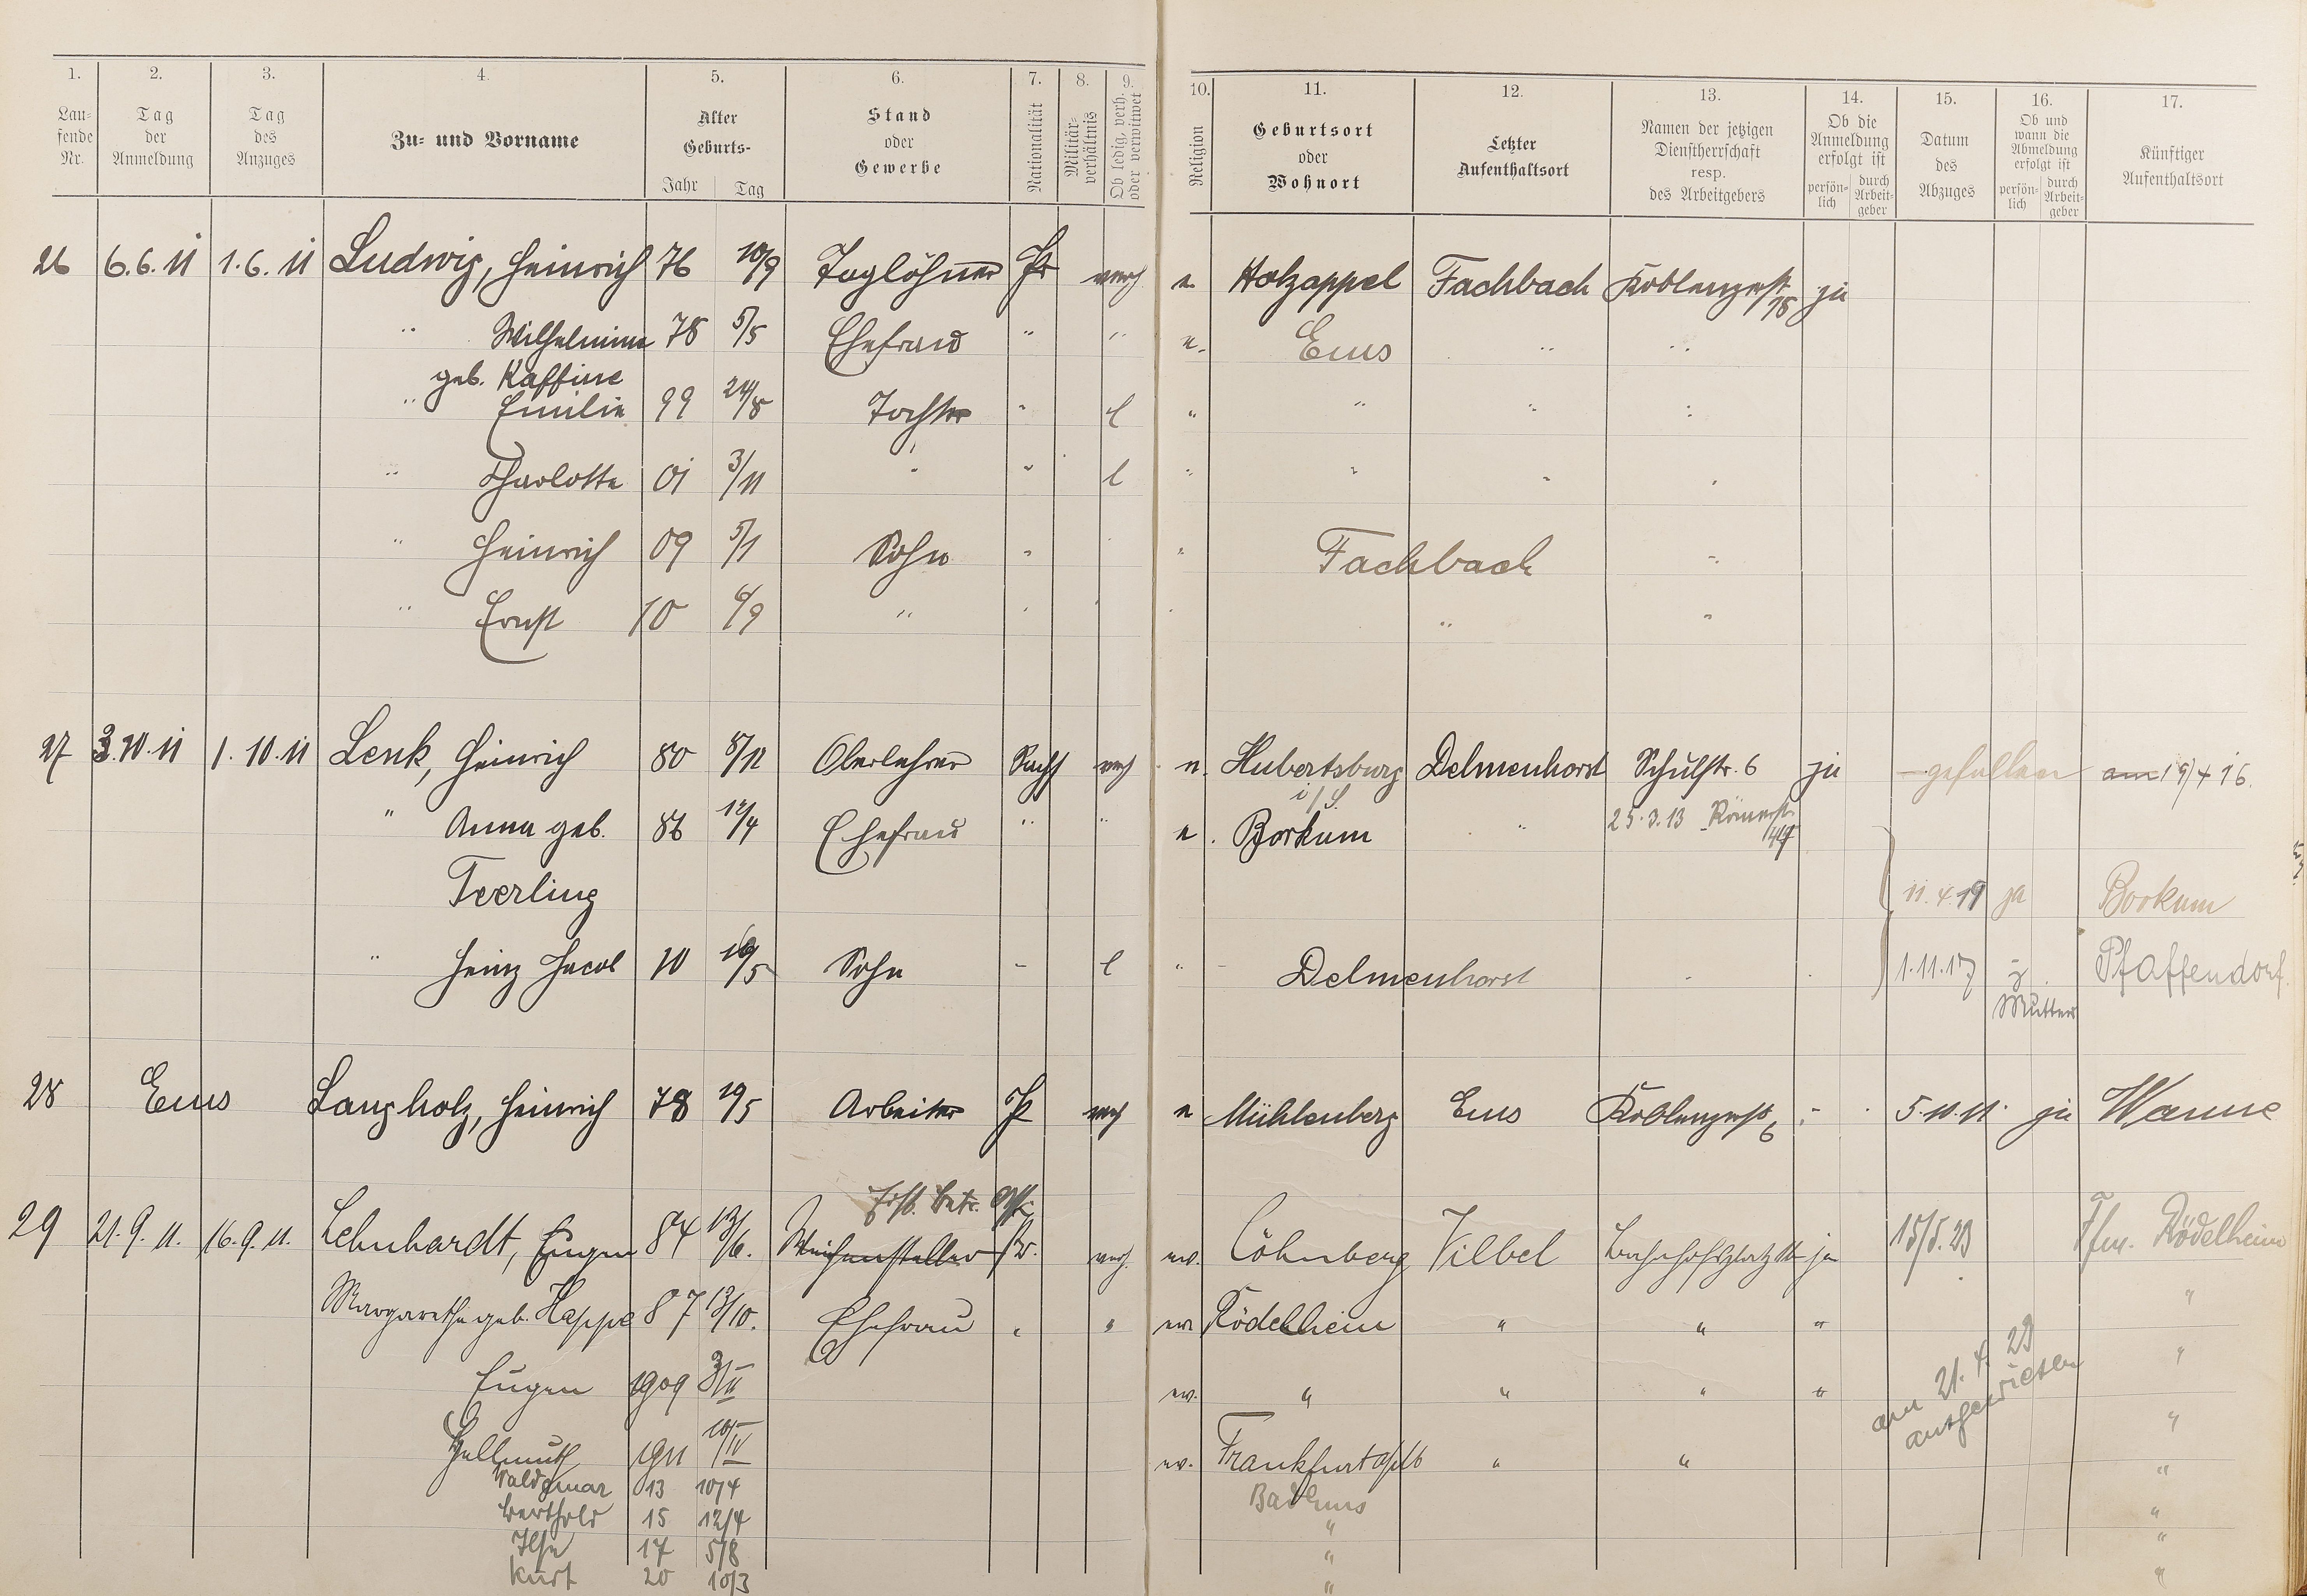 1. 2. 3. 4. 5. 6. 7. 8. 9. 10. 11. 12. 13. 14. 15. 16. 17.
Lau-
fende
Nr.
Tag
der
Anmeldung
Tag
des
Anzuges
Zu- und Vorname
Alter
Geburts-
Jahr Tag
Stand
oder
Gewerbe
Nationalität
Militär-
verhältnis
Ob ledig, verh.
oder verwitwet
Religion
Geburtsort
oder
Wohnort
Letzter
Aufenthaltsort
Namen der jetzigen
Dienstherrschaft
resp.
des Arbeitgebers
Ob die
Anmeldung
erfolgt ist
persön-
lich
durch
Arbeit-
geber
Datum
des
Abzuges
Ob und
wann die
Abmeldung
erfolgt ist
persön-
lich
durch
Arbeit-
geber
Künftiger
Aufenthaltsort
26 6.6.11 1.6.11 Ludwig, Heinrich 76 10/9 Taglöhner Pr verh e. Holzappel Fachbach Koblenzerst 18 ja
" Wilhelmine 78 5/5 Ehefrau " " e. Ems " "
geb. Kaffine
" Emilie 99 24/8 Tochter " l " " " "
" Charlotte 01 3/11 " " l " " " "
" Heinrich 09 5/1 Sohn " " Fachbach "
" Ernst 10 6/9 " " " "
27 3.10.11 1.10.11 Lenk, Heinrich 80 8/11 Oberlehrer Sachs verh e. Hubertsburg Delmenhorst Schulstr. 6 ja gefallen am 19/4 16.
i/S.
" Anna geb. 86 12/4 Ehefrau " " e. Borkum " 25.3.13 Römerstr.
Teerling 11.4.19 ja Borkum
" Heinz Jacob 10 16/5 Sohn - l " Delmenhorst 1.11.17 Pfaffendorf.
Mutter
28 Ems Langholz, Heinrich 78 19/5 Arbeiter Pr verh e Mühlenberg Ems Koblenzerst 6 5.10.11. ja Wanne
29 21.9.11. 16.9.11. Lehnhardt, Eugen 84 13/6. Weichensteller Pr. verh. ev. Cöhnberg Vilbel Bahnhofsplatz ja 15/5.23 Ffm. Rödelheim
Margarethe geb. Happel 87 13/10. Ehefrau " " ev. Rödelheim " " " "
Eugen 1909 3/II ev. " " " " am 21.4.23 "
ausgewiesen
Hellmuth 1911 10/IV ev. Frankfurt a/M " " "
Waldemar 13 10/4 Bad Ems "
Berthold 15 12/4 " "
Ilse 17 5/8 " "
Kurt 20 10/3 " "